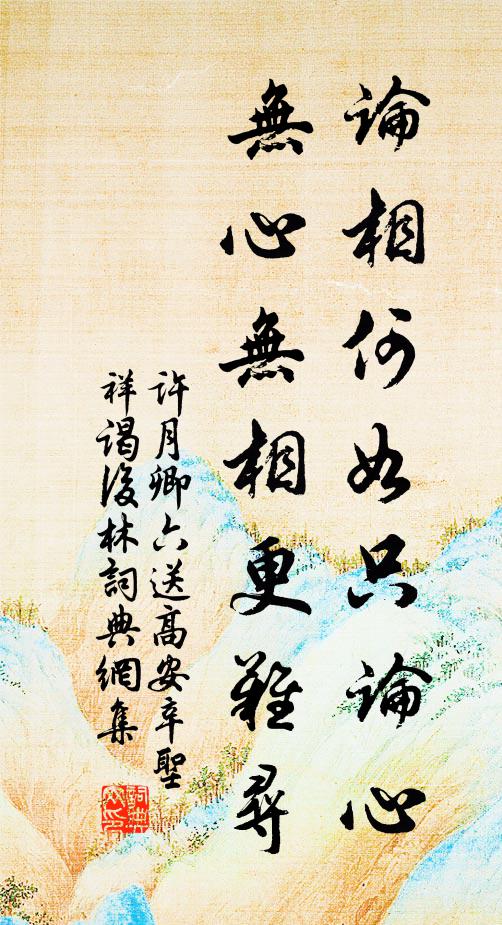 論相何如只論心
無心無相更難尋
許月卿六送高安辛聖
祥謁後林詞典網集